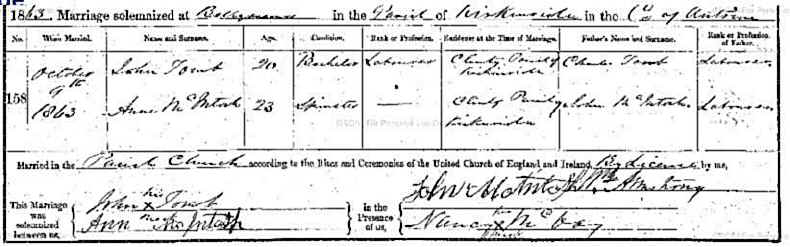 1863. Marriage solemnized at in the Parish of in the Co of Antrim
No. When Married. Name and Surname. Age. Condition. Rank or Profession. Residence at the Time of Marriage. Father's Name and Surname. Rank or Profession of Father.
158 October 9th 1863 John Tomb 20 Bachelor Labourer Parish of Charles Tomb Labourer
Anne McIntosh 23 Spinster — Parish of John McIntosh Labourer
Married in the Parish Church according to the Rites and Ceremonies of the United Church of England and Ireland, By licence by me,
Armstrong
This Marriage was solemnized between us, John his x Tomb
Ann McIntosh
in the Presence of us, John McIntosh
Nancy x McCoy